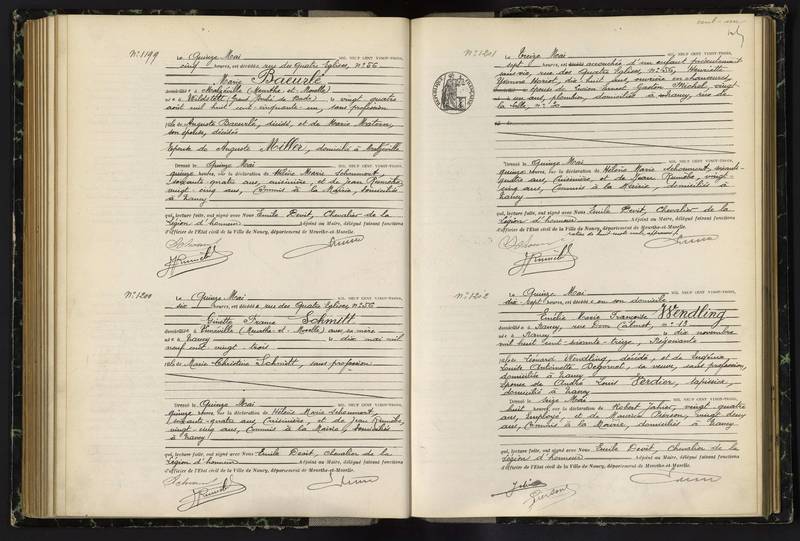 N° 1199
Le Quinze Mai MIL NEUF CENT VINGT-TROIS,
cinq heures, est décédée rue des Quatre Eglises, N° 56
Marie Baeurlé
domiciliée à Malzéville (Meurthe-et-Moselle)
née à Waldstett, Grand Duché de Bade) le vingt quatre
août mil huit cent cinquante un, sans profession
fille de Auguste Baeurlé, décédé, et de Marie Matern,
son épouse, décédée
Epouse de Auguste Miller, domicilié à Malzéville
Dressé le Quinze Mai MIL NEUF CENT VINGT-TROIS,
quinze heures, sur la déclaration de Hélène Marie Schoumert,
soixante-quatre ans, cuisinière, et de Jean Ruméche,
vingt-cinq ans, Commis à la Mairie, domiciliés
à Nancy
qui, lecture faite, ont signé avec Nous Emile Devit, Chevalier de la
Légion d'honneur Adjoint au Maire, délégué faisant fonctions
d'officier de l'Etat civil de la Ville de Nancy, département de Meurthe-et-Moselle.
N° 1200
Le Quinze Mai MIL NEUF CENT VINGT-TROIS,
six heures, est décédée, rue des Quatre Eglises, N° 56
Ginette France Schmitt
domiciliée à Lunéville (Meurthe-et-Moselle) avec sa mère
née à Nancy le dix mai mil
neuf cent vingt-trois
fille de Marie-Christine Schmitt, sans profession
Dressé le Quinze Mai MIL NEUF CENT VINGT-TROIS,
quinze heures, sur la déclaration de Hélène Marie Schoumert,
soixante-quatre ans, Cuisinière, et de Jean Ruméche,
vingt-cinq ans, Commis à la Mairie, domiciliés
à Nancy
qui, lecture faite, ont signé avec Nous Emile Devit, Chevalier de la
Légion d'honneur Adjoint au Maire, délégué faisant fonctions
d'officier de l'Etat civil de la Ville de Nancy, département de Meurthe-et-Moselle.
N° 1201
Le treize Mai MIL NEUF CENT VINGT-TROIS,
sept heures, est accouchée d'un enfant présentement
sans vie, rue des Quatre Eglises, N° 56, Henriette
Yvonne Hariot, dix huit ans, ouvrière en chaussures,
épouse de Lucien Ernest Gaston Michel, vingt-
ans, plombier, domiciliée à Nancy, rue de
la Salle, N°
Dressé le Quinze Mai MIL NEUF CENT VINGT-TROIS,
quinze heures, sur la déclaration de Hélène Marie Schoumert, soixante-
quatre ans, Cuisinière, et de Jean Ruméche, vingt-
cinq ans, Commis à la Mairie, domiciliés à
Nancy
qui, lecture faite, ont signé avec Nous Emile Devit, Chevalier de la
Légion d'honneur Adjoint au Maire, délégué faisant fonctions
d'officier de l'Etat civil de la Ville de Nancy, département de Meurthe-et-Moselle.
N° 1202
Le Quinze Mai MIL NEUF CENT VINGT-TROIS,
dix-sept heures, est décédée en son domicile
Emélie Marie Françoise Wendling
domiciliée à Nancy, rue Dom Calmet, n° 13
née à Nancy le dix novembre
mil huit cent soixante-treize, Négociante
fille de Léonard Wendling, décédé, et de Eugénie
Louise Antoinette Degornet, sa veuve, sans profession,
domiciliée à Nancy
Epouse de André Louis Verdier, tapissier,
domicilié à Nancy
Dressé le Seize Mai MIL NEUF CENT VINGT-TROIS,
huit heures, sur la déclaration de Robert Jahier, vingt quatre
ans, Employé, et de Maurice Pierson, vingt deux
ans, Commis à la Mairie, domiciliés à Nancy
qui, lecture faite, ont signé avec Nous Emile Devit, Chevalier de la
Légion d'honneur Adjoint au Maire, délégué faisant fonctions
d'officier de l'Etat civil de la Ville de Nancy, département de Meurthe-et-Moselle.